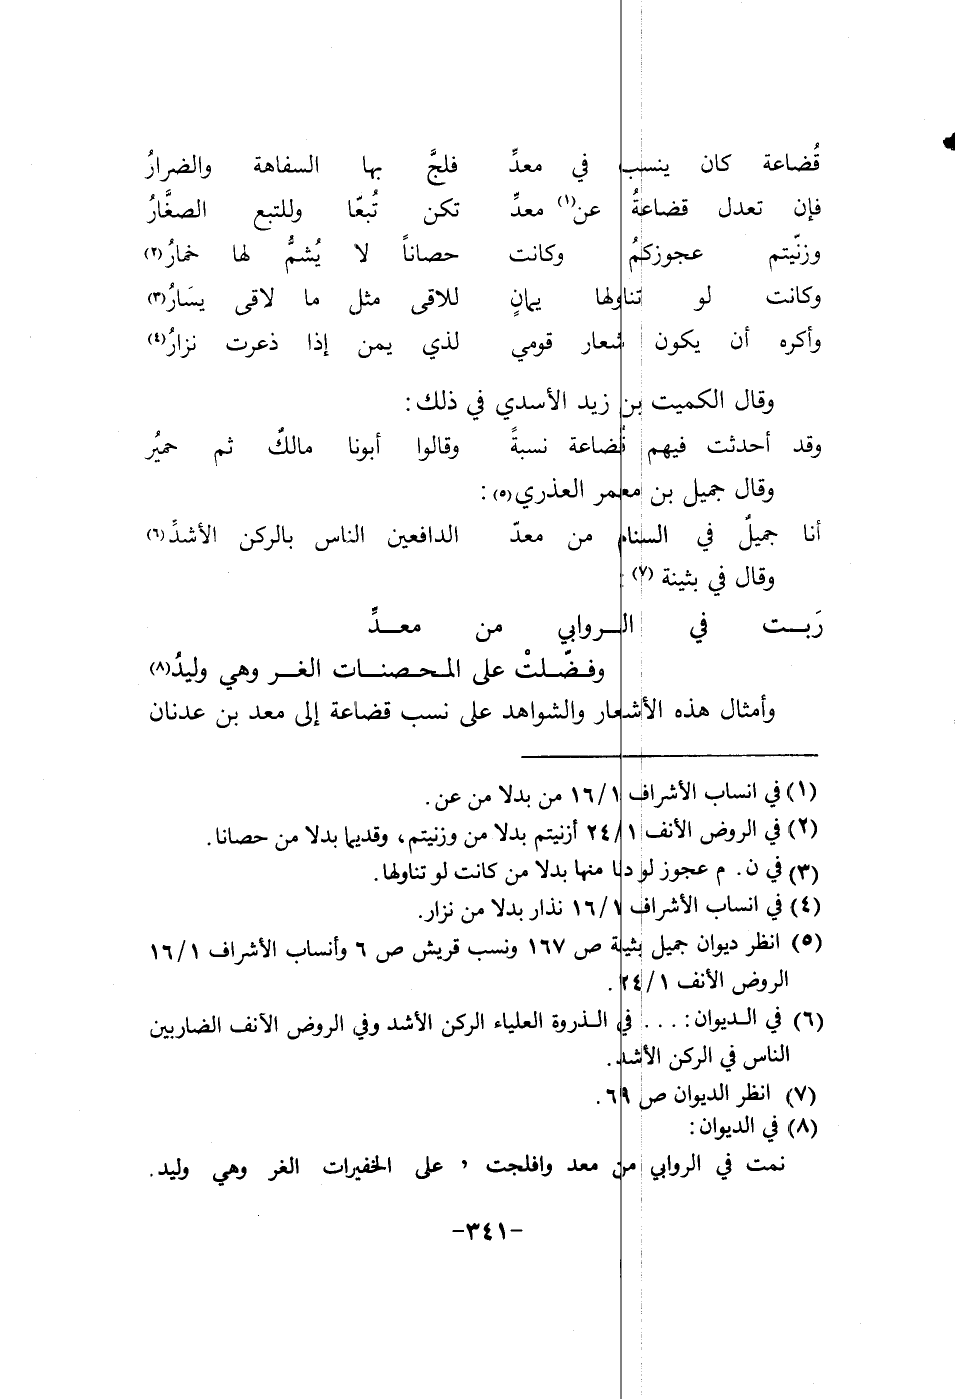 قُضاعة كان ينسب في معدِّ فلجَّ بها السفاهة والضرارُ
فإن تعدل قضاعةُ عن(١) معدِّ تكن تُبعّا وللتبع الصغَّارُ
وزنّيتم عجوزكمُ وكانت حصاناً لا يُشمُّ لها خمارُ(٢)
وكانت لو تناولها يمانٍ للاقى مثل ما لاقى يسَارُ(٣)
وأكره أن يكون شعار قومي لذي يمن إذا ذعرت نزارُ(٤)
وقال الكميت بن زيد الأسدي في ذلك:
وقد أحدثت فيهم قُضاعة نسبةً وقالوا أبونا مالكٌ ثم حميُر
وقال جميل بن معمر العذري(٥):
أنا جميلٌ في السنام من معدّ الدافعين الناس بالركن الأشدِّ(٦)
وقال في بثينة (٧):
رَبـــت في الـــروابي من معـــدِّ
وفـضّـلتْ على المـحـصنـات الغـر وهي وليدُ(٨)
وأمثال هذه الأشعار والشواهد على نسب قضاعة إلى معد بن عدنان
(١) في انساب الأشراف ١٦/١ من بدلا من عن.
(٢) في الروض الأنف ٢٤/١ أزنيتم بدلا من وزنيتم، وقديما بدلا من حصانا.
(٣) في ن. م عجوز لو دنا منها بدلا من كانت لو تناولها.
(٤) في انساب الأشراف ١٦/١ نذار بدلا من نزار.
(٥) انظر ديوان جميل بثينة ص ١٦٧ ونسب قريش ص ٦ وأنساب الأشراف ١٦/١
الروض الأنف ٢٤/١.
(٦) في الـديوان: . . . في الـذروة العلياء الركن الأشد وفي الروض الآنف الضاربين
الناس في الركن الأشد.
(٧) انظر الديوان ص ٦٩.
(٨) في الديوان:
نمت في الروابي من معد وافلجت , على الخفيرات الغر وهي وليد.
-٣٤١-